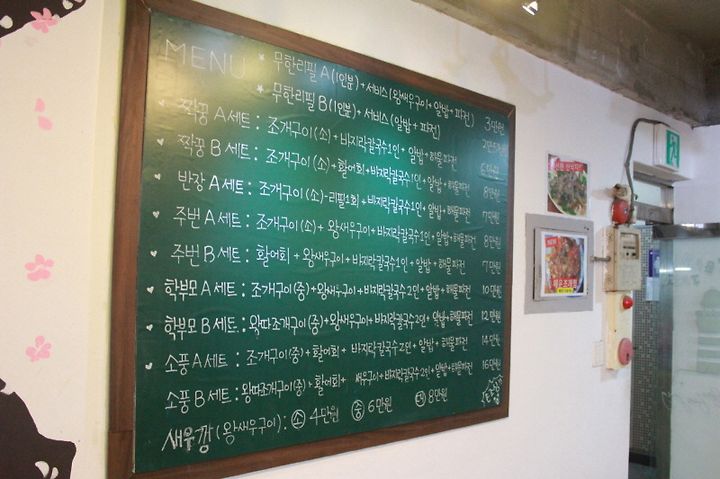 MENU * 무한리필 A (1인분) + 서비스 (왕새우구이 + 알밥 + 파전) 3만원
* 무한리필 B (1인분) + 서비스 (알밥 + 파전)
♥ 짝꿍 A 세트 : 조개구이 (소) + 바지락칼국수 1인 + 알밥 + 해물파전
♥ 짝꿍 B 세트 : 조개구이 (소) + 활어회 + 바지락칼국수 1인 + 알밥 + 해물파전 8만원
♥ 반장 A 세트 : 조개구이 (소) - 리필 1회 + 바지락칼국수 1인 + 알밥 + 해물파전 7만원
♥ 주번 A 세트 : 조개구이 (소) + 왕새우구이 + 바지락칼국수 1인 + 알밥 + 해물파전 8만원
♥ 주번 B 세트 : 활어회 + 왕새우구이 + 바지락칼국수 1인 + 알밥 + 해물파전 7만원
♥ 학부모 A 세트 : 조개구이 (중) + 왕새우구이 + 바지락칼국수 2인 + 알밥 + 해물파전 10만원
♥ 학부모 B 세트 : 왕따조개구이 (중) + 왕새우구이 + 바지락칼국수 2인 + 알밥 + 해물파전 12만원
♥ 소풍 A 세트 : 조개구이 (중) + 활어회 + 바지락칼국수 2인 + 알밥 + 해물파전 14만원
소풍 B 세트 : 왕따조개구이 (중) + 활어회 + 새우구이 + 바지락칼국수 2인 + 알밥 + 해물파전 16만원
새우깡 (왕새우구이) : 소 4만원 중 6만원 대 8만원